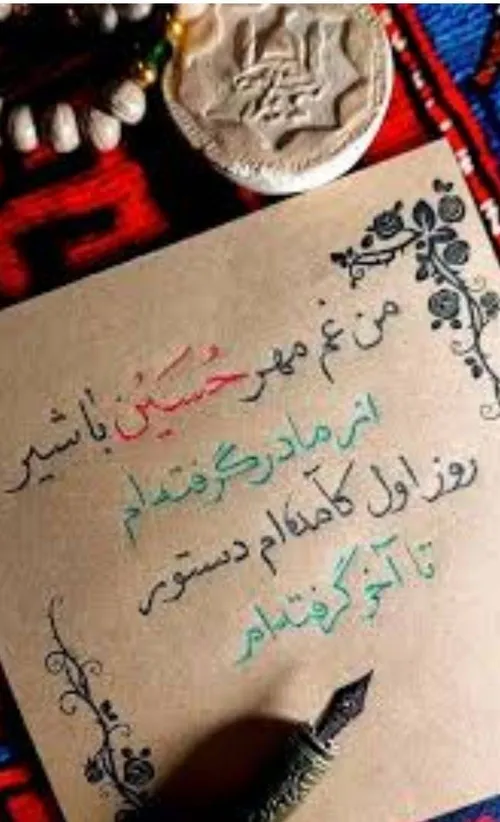 من غم مهر حُسَیْن باشیر
از مادر گرفته‌ام
روز اول کآمده‌ام دستور
تا آخر گرفته‌ام